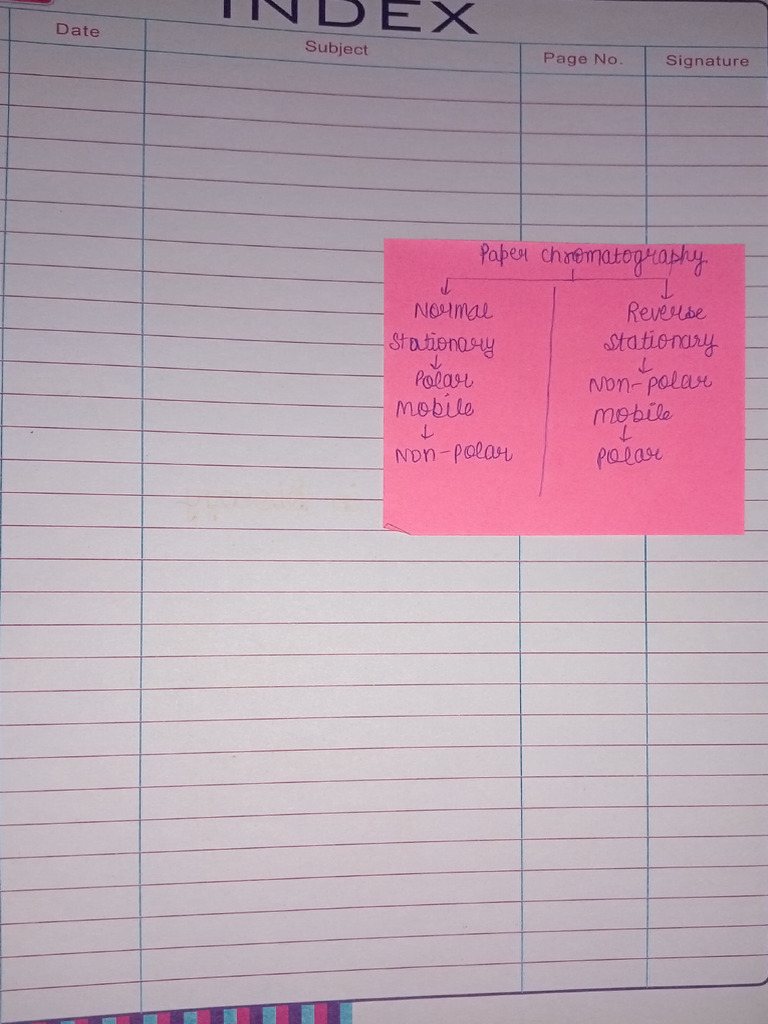 INDEX
Date Subject Page No. Signature
Paper chromatography
Normal Reverse
Stationary Stationary
Polar Non-polar
Mobile Mobile
Non-polar Polar